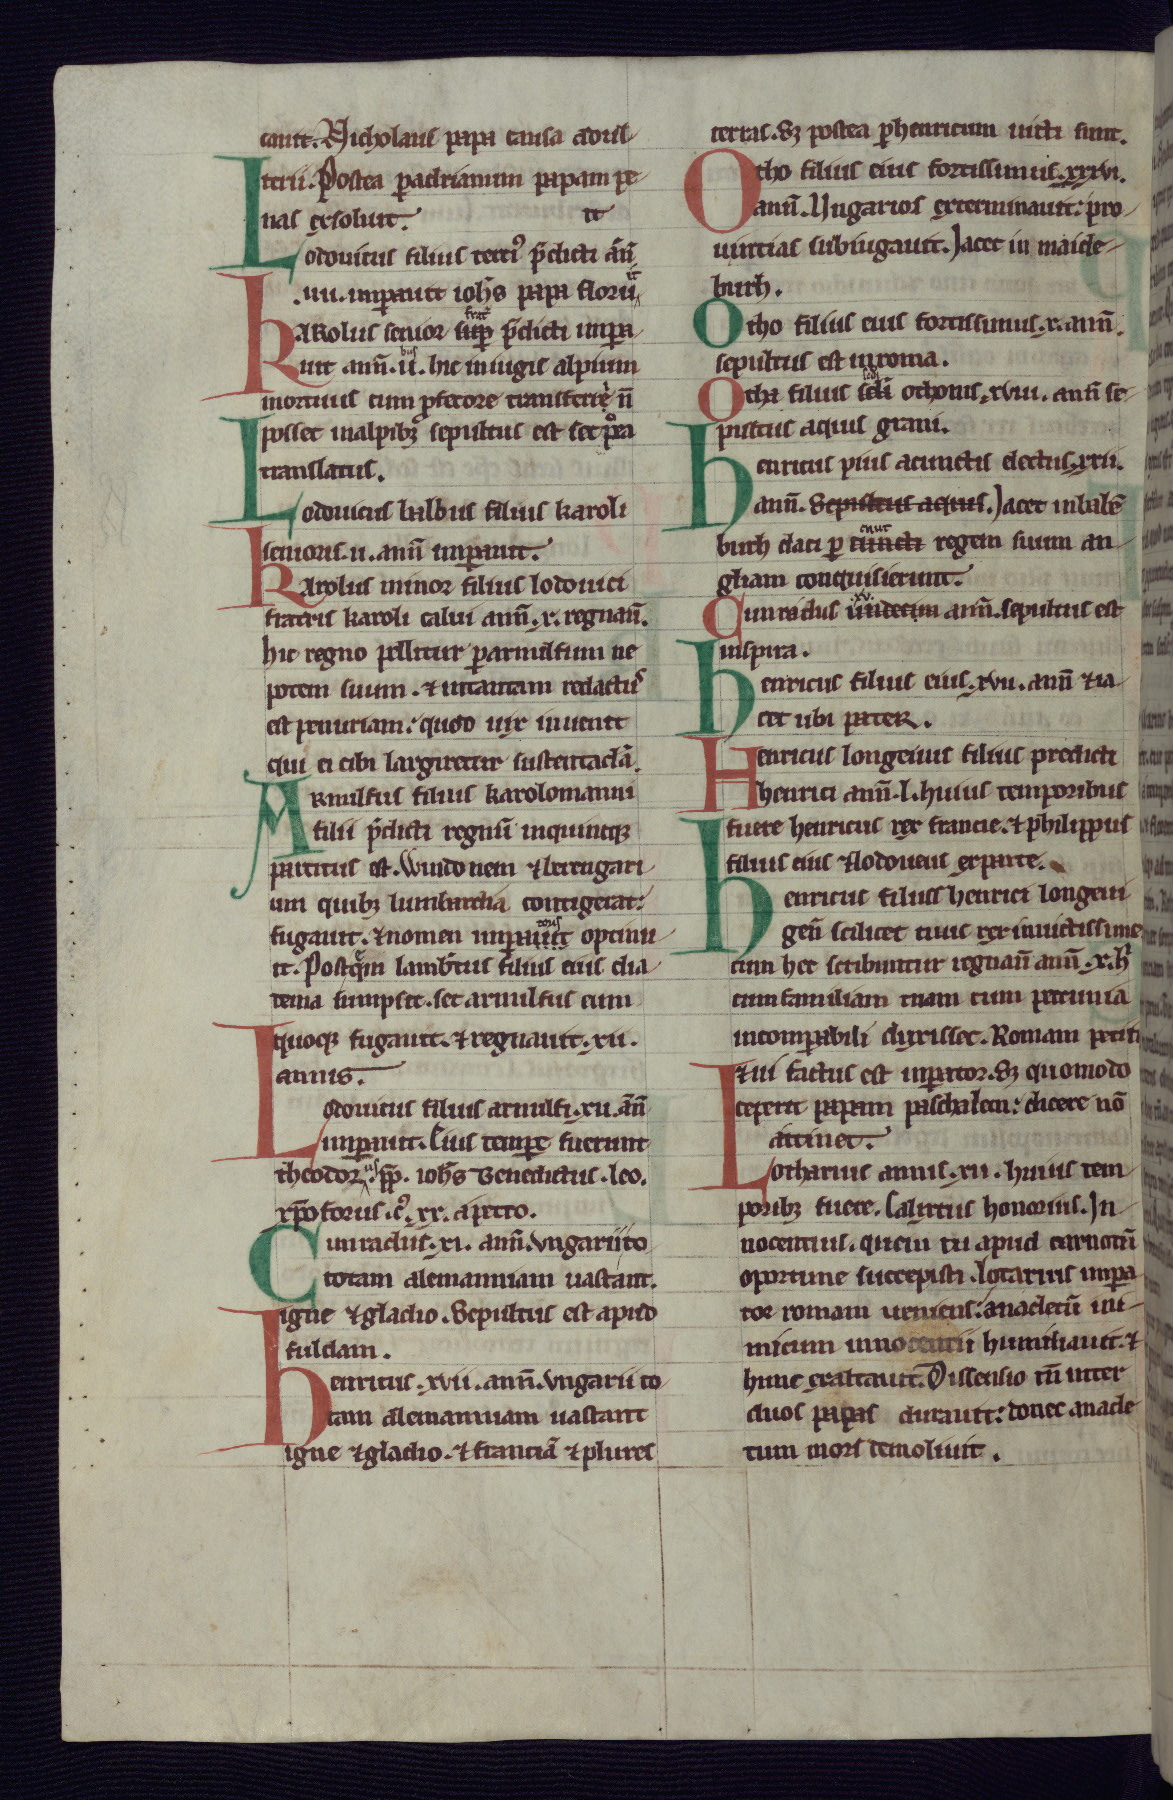 cauit. Nicholaus papa causa adul-
terii. Postea p adrianum papam pe
nas exsoluit. it
Lodouicus filius tercii p̄dicti ānī
.uii. imperauit ioh̄s papa floru
Karolus senior frat̄ sup̄ p̄dicti impa
uit ann̄. ii. hic in iugis alpium
mortuus cum p fetore transferri n̄
posset in alpibꝫ sepultus est set p̄ea
translatus.
Lodouicus balbus filius karoli
senioris .ii. ann̄ imperauit.
Karolus minor filius lodouici
fratris karoli calui ann̄. x. regnau̅.
hic regno pellitur p arnulfum ne
potem suum. ⁊ in tantam redactus
est penuriam: quod uix inuenit
qui ei cibi largiretur sustentaclā.
Arnulfus filius karolomanni
filii p̄dicti regnū in quinqꝫ
partitus est. Widonem ⁊ berengari
um quibꝫ lumbardia contigerat:
fugauit. ⁊ nomen imperatoris optinu
it. Postq̄m lamb̄tus filius eius dia
dema sumpsit. set arnulfus eum
quoqꝫ fugauit. ⁊ regnauit. xii.
annis.
Lodouicus filius arnulfi. xii. ān̄
imperauit. Eius tempe fuerunt
theodorus. pp̄. ioh̄s benedictus. leo.
xp̄oforus. c̄. xx. a petro.
Cunradus. xi. ann̄. vngarii to
totam alemanniam uastant.
igne ⁊ gladio. Sepultus est apud
fuldam.
henricus. xvii. ann̄. vngarii to
tam alemanniam uastant
igne ⁊ gladio. ⁊ franciā ⁊ plures
terras. Sꝫ postea p henricum uicti sunt.
Otho filius eius fortissimus. xxxvi.
ann̄. Vngarios exterminauit: pro-
uincias subiugauit. Jacet in maide-
burh.
Otho filius eius fortissimus. x. ann̄.
sepultus est in roma.
Otho filius scdi othonis. xviii. ann̄ se-
pultus aquis grani.
henricus pius a cunctis electus. xxii.
ann̄. Sepultus aquis. Jacet in babē
burh daci p cnut cuncti regem suum an-
gliam conquisierunt.
Cunradus xv. undecim ann̄. sepultus est
in spira.
henricus filius eius. xvii. ann̄ ⁊ ia
cet ubi pater.
Henricus longeuus filius predicti
henrici ann̄. l. huius temporibus
fuere henricus rex francie. ⁊ philippus
filius eius ⁊ lodoueus ex parte.
henricus filius henrici longeui
gen̄ scilicet tuus rex inuictissime
cum hec scribuntur regnau̅ ann̄. x. h̄
cum familiam tuam cum pecunia
incompabili duxisset. Romam petiit
⁊ ui factus est imperator. Sꝫ quomodo
ceperit papam paschalem: dicere nō
attinet.
Lotharius annis. xii. huius tem
poribꝫ fuere. Calixtus honorius. In-
nocentius. quem tu apud carnotū
oportune suscepisti. lotarius impera
tor romam ueniens: anacletū ini-
micum innocentii humiliauit. ⁊
hunc exaltauit. Dissensio tn̄ inter
duos papas durauit: donec anacle
tum mors demoliuit.